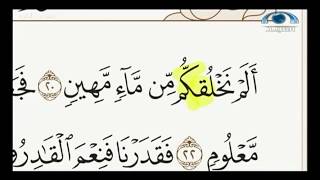 أَلَمْ نَخْلُقكُّم مِّن مَّآءٍ مَّهِينٍ ٢٠ فَجَ
مَّعْلُومٍ ٢٢ فَقَدَرْنَا فَنِعْمَ ٱلْقَـٰدِرُو